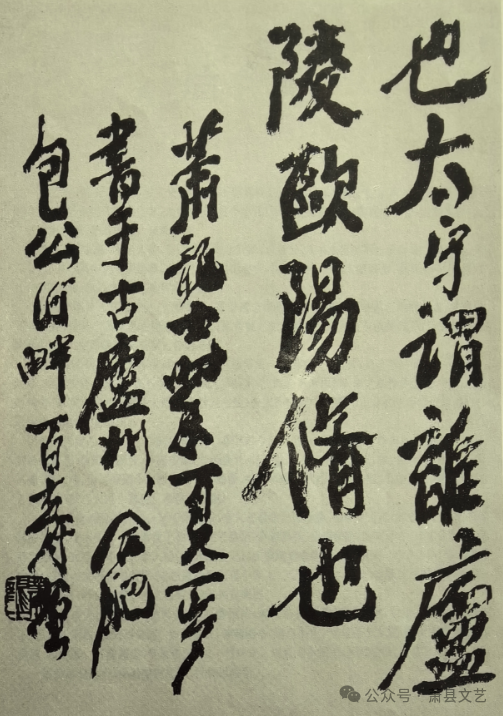 也太守謂誰廬
陵歐陽脩也
蕭龍士時年百又二岁
書于古廬州合肥
包公河畔百壽堂
公众号·萧县文艺